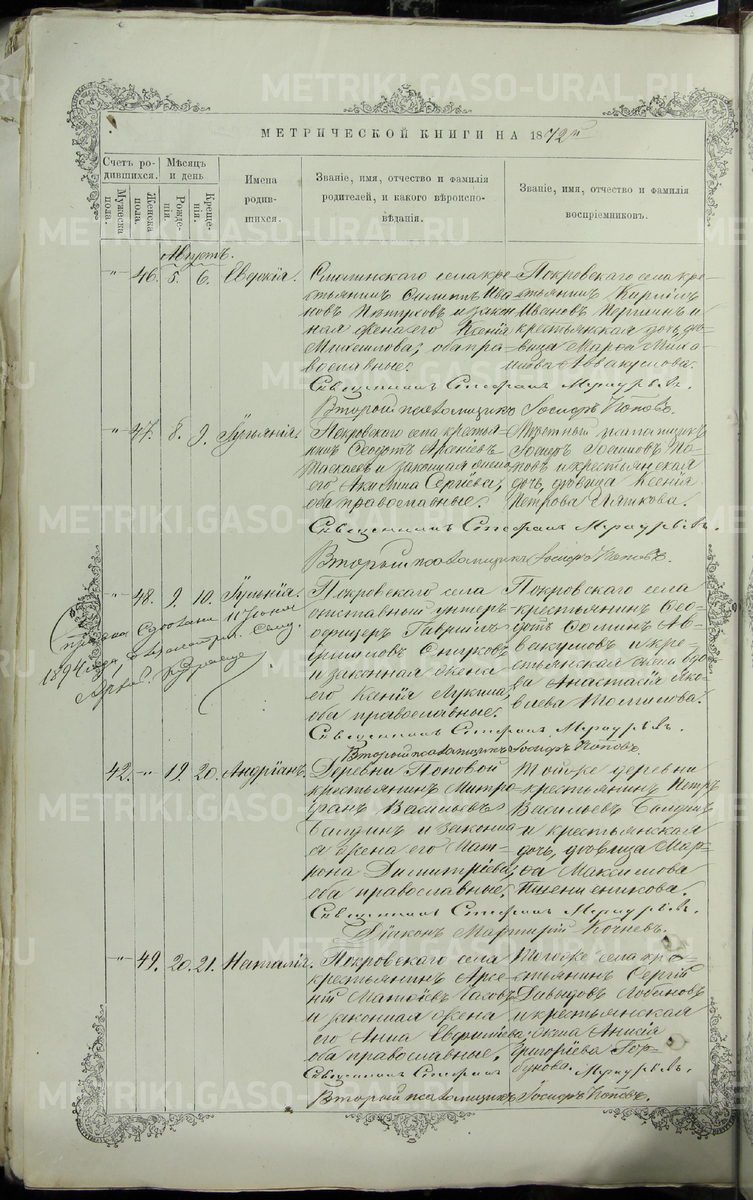 МЕТРИЧЕСКОЙ КНИГИ НА 1872й
Счетъ родившихся.
Мѣсяцъ и день
Имена родившихся.
Званіе, имя, отчество и фамилія родителей, и какого вѣроисповѣданія.
Званіе, имя, отчество и фамилія воспріемниковъ.
Мужеска пола.
Женска пола.
Рожденія.
Крещенія.
Августъ.
" 46. 5. 6. Евдокія.
Смолинскаго села кре-
стьянинъ Филиппъ Ива
новъ Петуховъ и закон
ная жена его Ксенія
Михаилова; оба пра-
вославные.
Покровскаго села кре-
стьянинъ Кириллъ
Ивановъ и
крестьянская дочь, дѣ-
вица Марѳа
Аввакумова.
Священникъ Стефанъ
Второй псаломщикъ Іосифъ Поповъ.
" 47. 8. 9. Іуліанія.
Покровскаго села крестья-
нинъ Ѳеодотъ Арсеніевъ
Таскаевъ и законная жена
его Акилина Сергіева;
оба православные.
Мѣстный псаломщикъ
Іосифъ Іосифовъ По-
повъ и крестьянская
дочь, дѣвица Ксенія
Петрова
Священникъ Стефанъ
Второй псаломщикъ Іосифъ Поповъ.
" 48. 9. 10. Іуліанія.
Покровскаго села
отставный унтеръ
офицеръ Гавріилъ
и законная жена
его Ксенія Лукина;
оба православные.
Покровскаго села
крестьянинъ Ѳео-
дотъ Ѳоминъ Ав-
вакумовъ и кре-
стьянская жена вдо-
ва Анастасія Яко-
влева Топилова.
1894 года
Священникъ Стефанъ
Второй псаломщикъ Іосифъ Поповъ.
42. " 19. 20. Андріанъ.
Деревни Поповой
крестьянинъ Митро
фанъ Васильевъ
Балдинъ и законна
я жена его Мат-
рона Димитріева;
оба православные.
Тойже деревни
крестьянинъ Петръ
Васильевъ Балдинъ
и крестьянская
дочь, дѣвица Мар-
ѳа Максимова
Пшенишникова.
Священникъ Стефанъ
Діаконъ Мартирій Кочневъ.
" 49. 20. 21. Наталія.
Покровскаго села
крестьянинъ Арсе-
ній Матѳіевъ
и законная жена
его Анна Евфиміева;
оба православные.
Тогоже села кре-
стьянинъ Сергій
Давыдовъ Лобановъ
и крестьянская
жена Анисія
Григоріева Гор-
бунова.
Священникъ Стефанъ
Второй псаломщикъ Іосифъ Поповъ.
METRIKI.GASO-URAL.RU